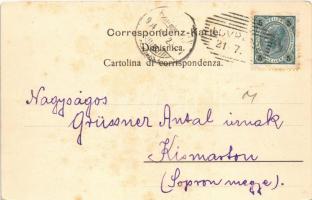 Correspondenz-Karte.
Dopisnica.
Cartolina di corrispondenza.
21. 7.
Nagyságos
Grüssner Antal úrnak
Kismarton
(Sopron megye).